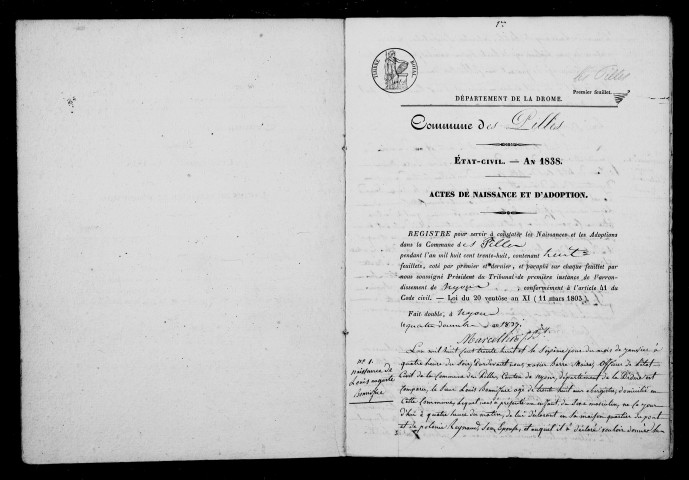 1er
TIMBRE ROYAL
les Pilles
Premier feuillet.
DÉPARTEMENT DE LA DROME.
Commune des Pilles
ÉTAT-CIVIL. — AN 1838.
ACTES DE NAISSANCE ET D'ADOPTION.
REGISTRE pour servir à constater les Naissances et les Adoptions
dans la Commune des Pilles
pendant l'an mil huit cent trente-huit, contenant huit
feuillets, coté par premier et dernier, et paraphé sur chaque feuillet par
nous soussigné Président du Tribunal de première instance de l'arron-
dissement de Nyons, conformément à l'article 41 du
Code civil. — Loi du 20 ventôse an XI (11 mars 1803)
Fait double, à Nyons
le quatre décembre 1837.
Marcellin
L'an mil huit cent trente huit et le sixième jour du mois de janvier à
quatre heures du soir, pardevant nous Xavier Barre Maire, officier de l'état
Civil de la Commune des Pilles, Canton de Nyons, département de la Drôme est
Comparu, le sieur Louis Bonnifice agé de trente huit ans, domicilié en
Cette Commune, lequel nous a présenté un enfant du sexe masculin, né ce jour
d'hui à quatre heures du matin, de lui déclarant en sa maison quartier du pont
et de Reynaud son épouse, et auquel il a déclaré vouloir donner les
N° 1.
naissance de
Louis auguste
Bonnifice